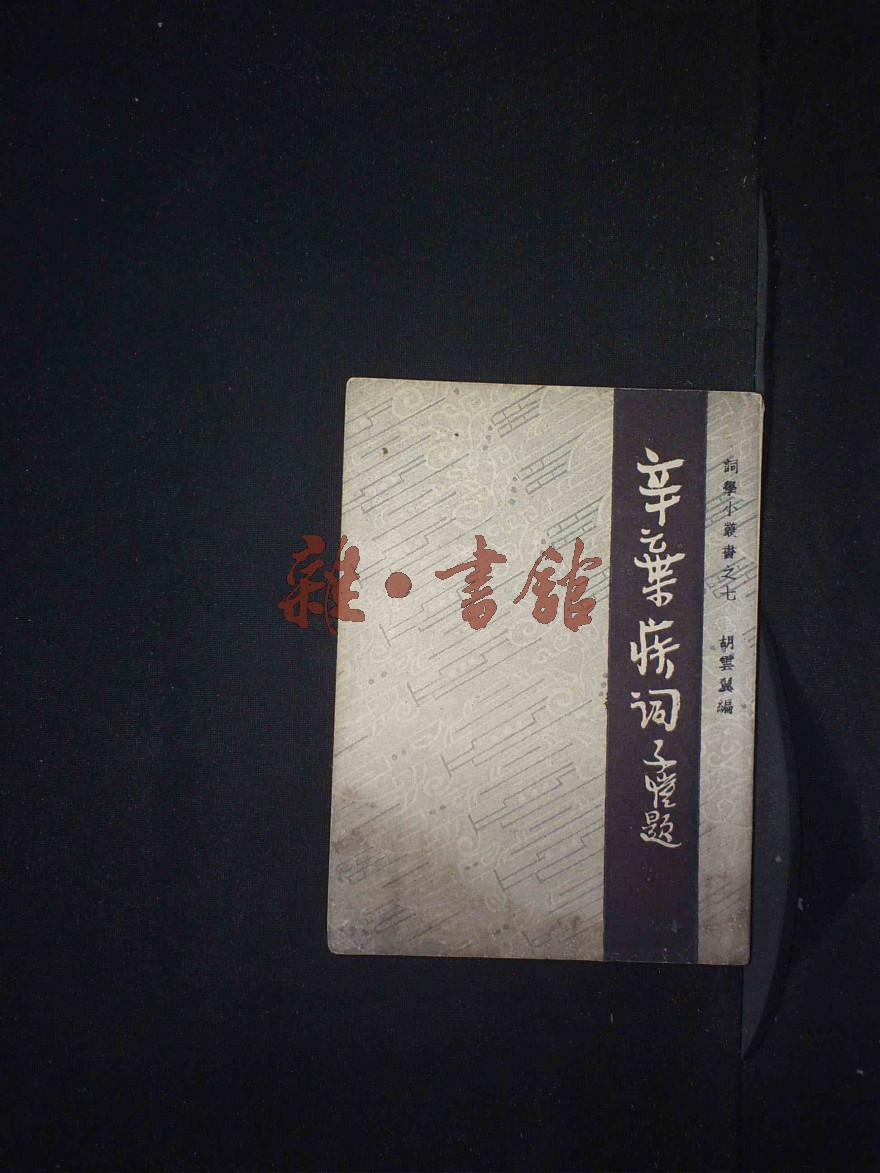 詞學小叢書之七 胡雲翼編
辛棄疾词 子愷题
雜·書舘